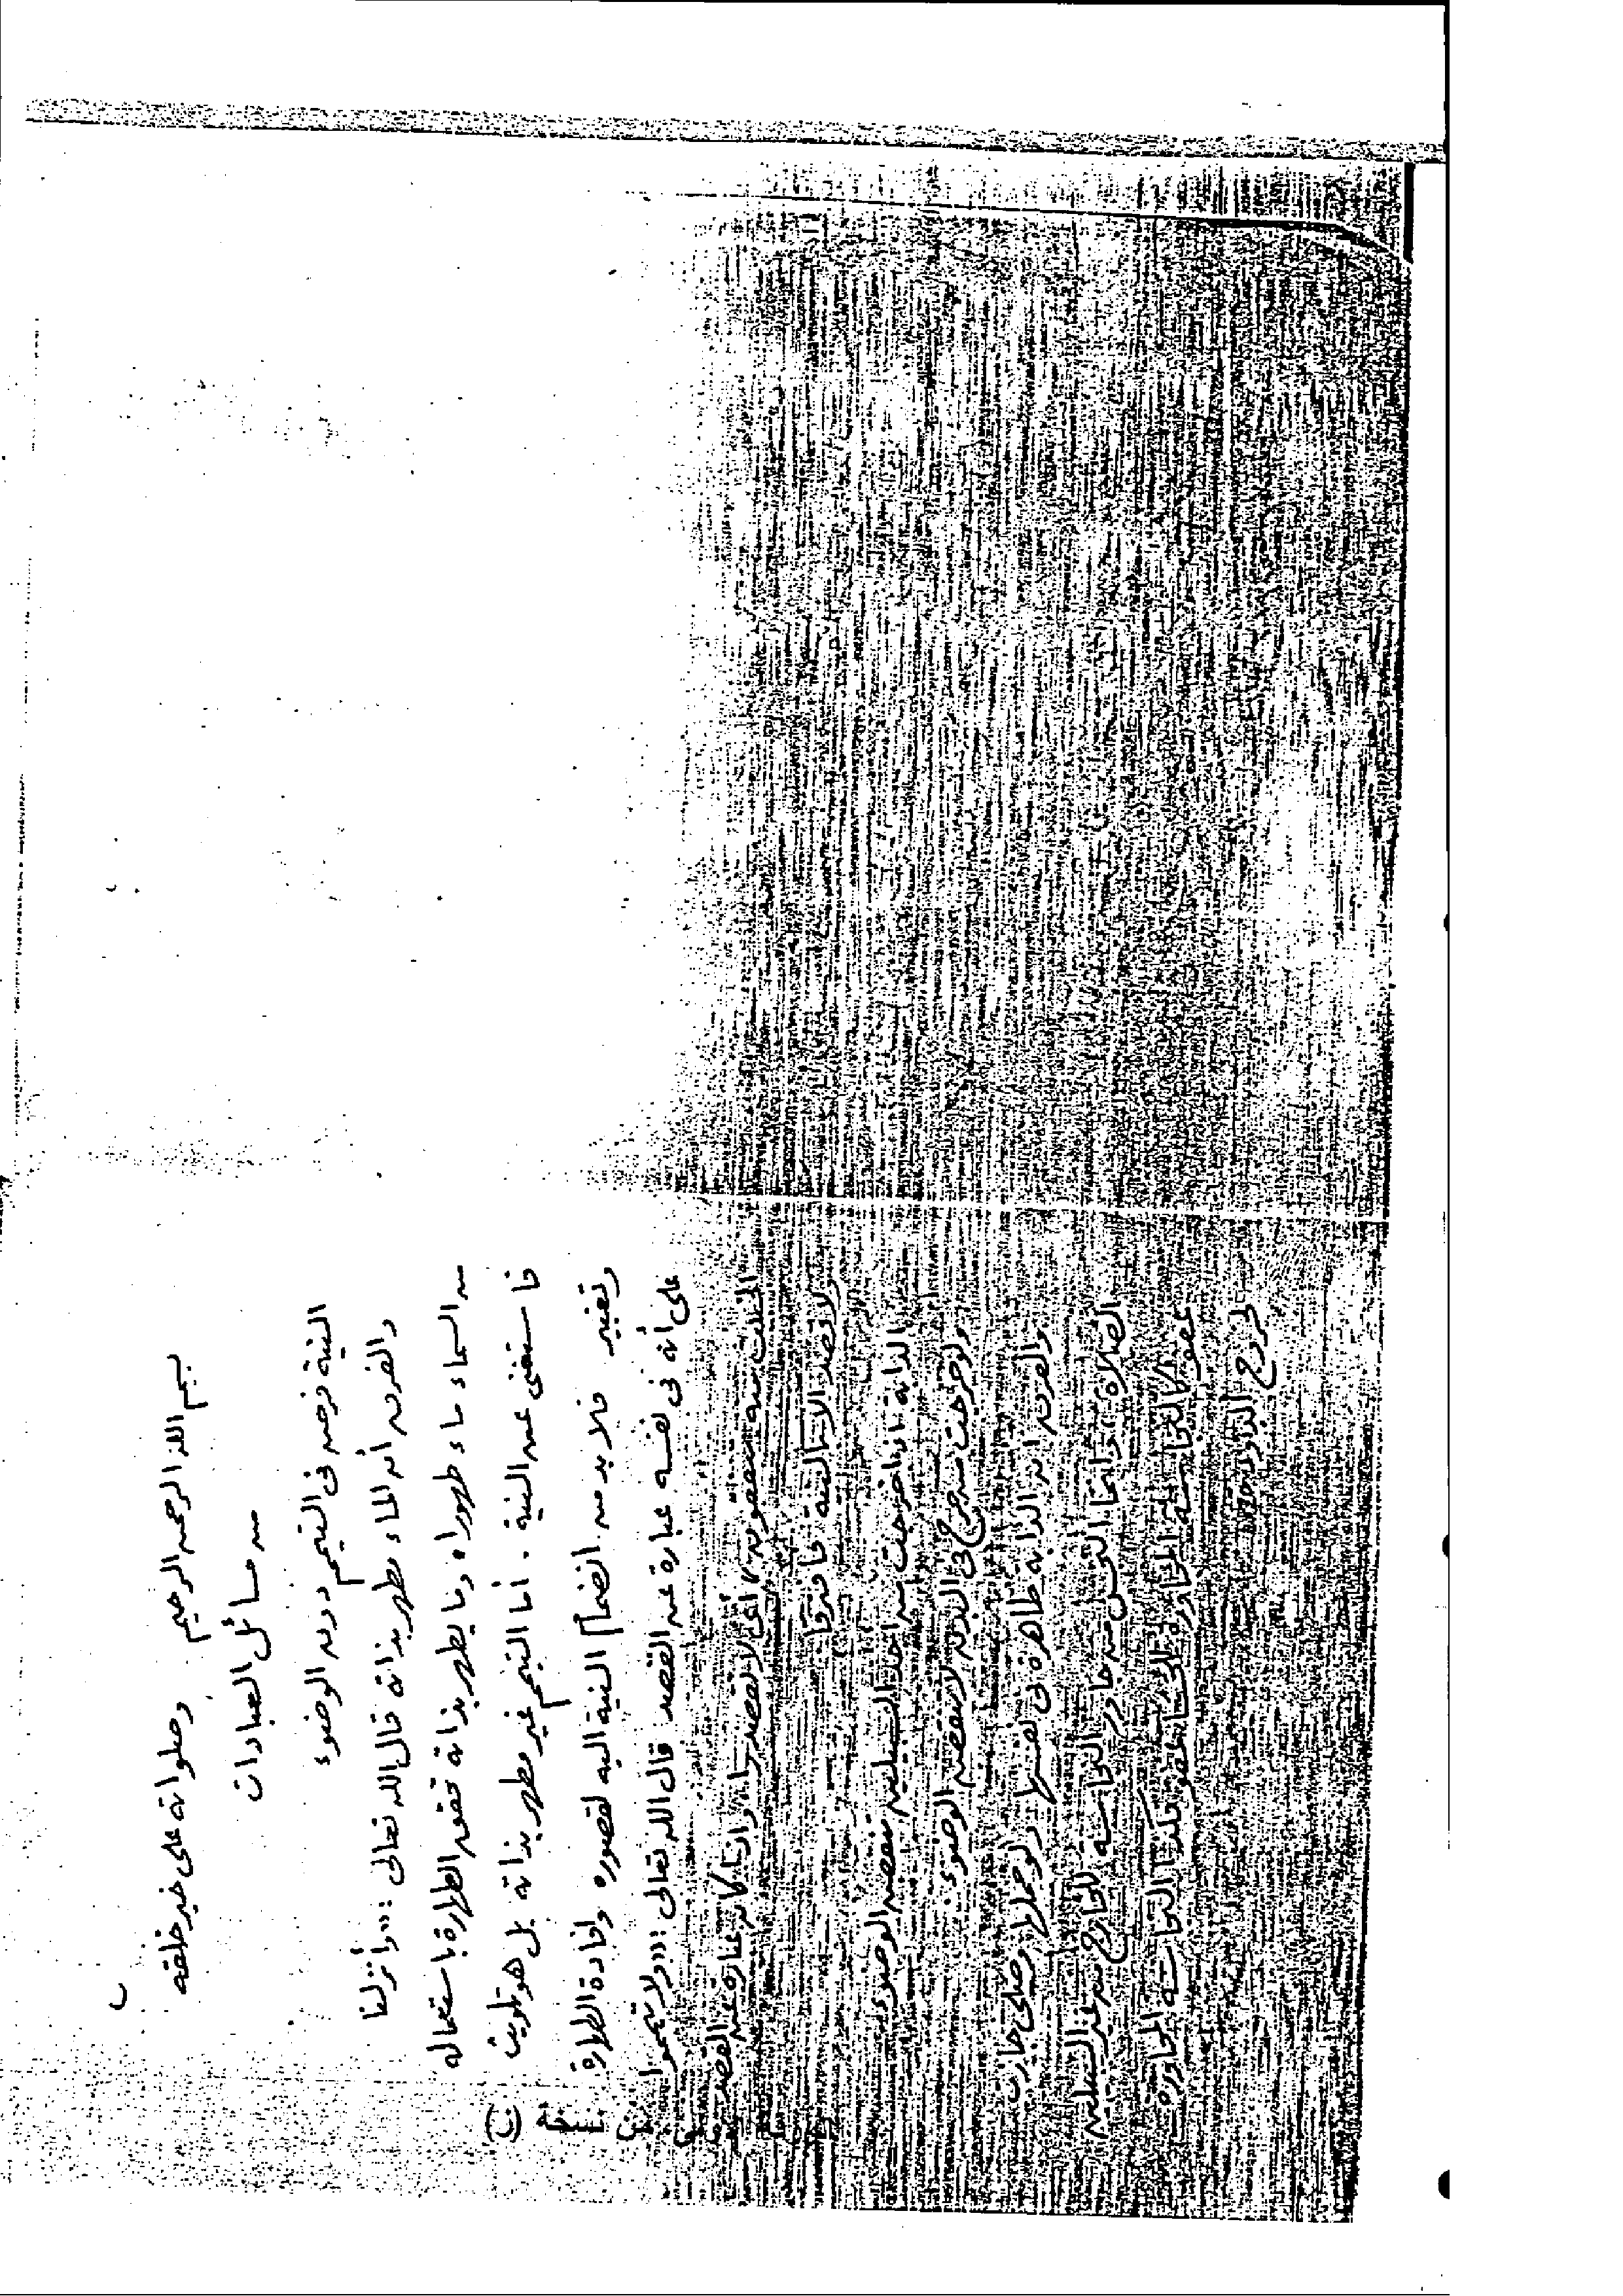 بسم الله الرحمن الرحيم وصلواته على خير خلقه
من مسائل العبادات
النية فرض فى التيمم دون الوضوء
والفرق أن الماء مطهر بذاته قال الله تعالى : « وأنزلنا
من السماء ماء طهورا » وما يطهر بذاته تحقق الطهارة باستعماله
فاستغنى عن النية . أما التيمم غير مطهر بذاته بل هو تلويث
وتغبير فلا بد من انضمام النية اليه لقصوره وافادة الطهارة
على أنه فى نفسه عبارة عن القصد قال الله تعالى : « ولا تيمموا
الخبيث منه تنفقون » أى لا تقصدوا واذا كان عبارة عن القصد
ولا قصد الا بالنية فافترقا
الدابة اذا خرجت من احد السبيلين تنقض الوضوء
ولو خرجت من جرح فى البدن لا تنقض الوضوء .
والفرق ان الدابة طاهرة فى نفسها ولو حملها وصلى جازت
الصلاة وانما النجس منه مجاور النجاسة للخارج من غير السبيلين
عفو كالنجاسة المجاورة النجاسة المجاورة
لخروج